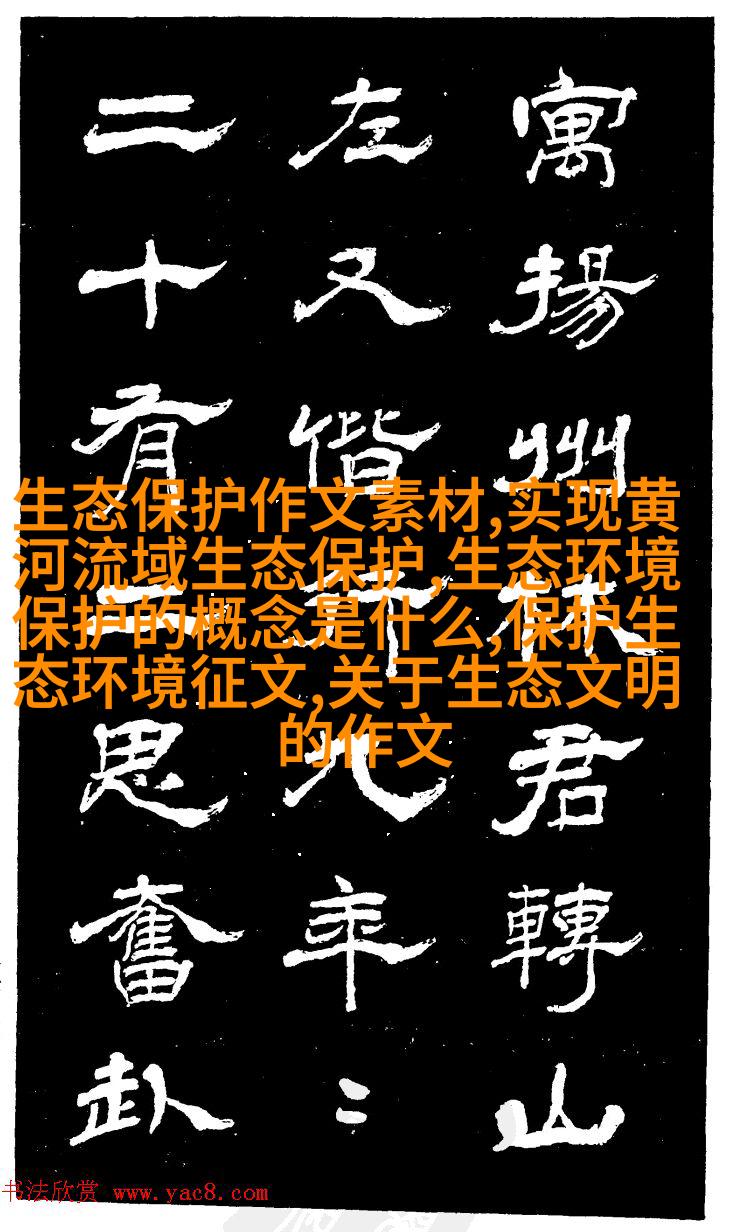 寓揚州君轉山
左又偕九年〻
二十有思奮赴
生态保护作文素材,实现黄
河流域生态保护,生态环境
保护的概念是什么,保护生
态环境征文,关于生态文明
的作文
书法欣赏 www.yac8.com